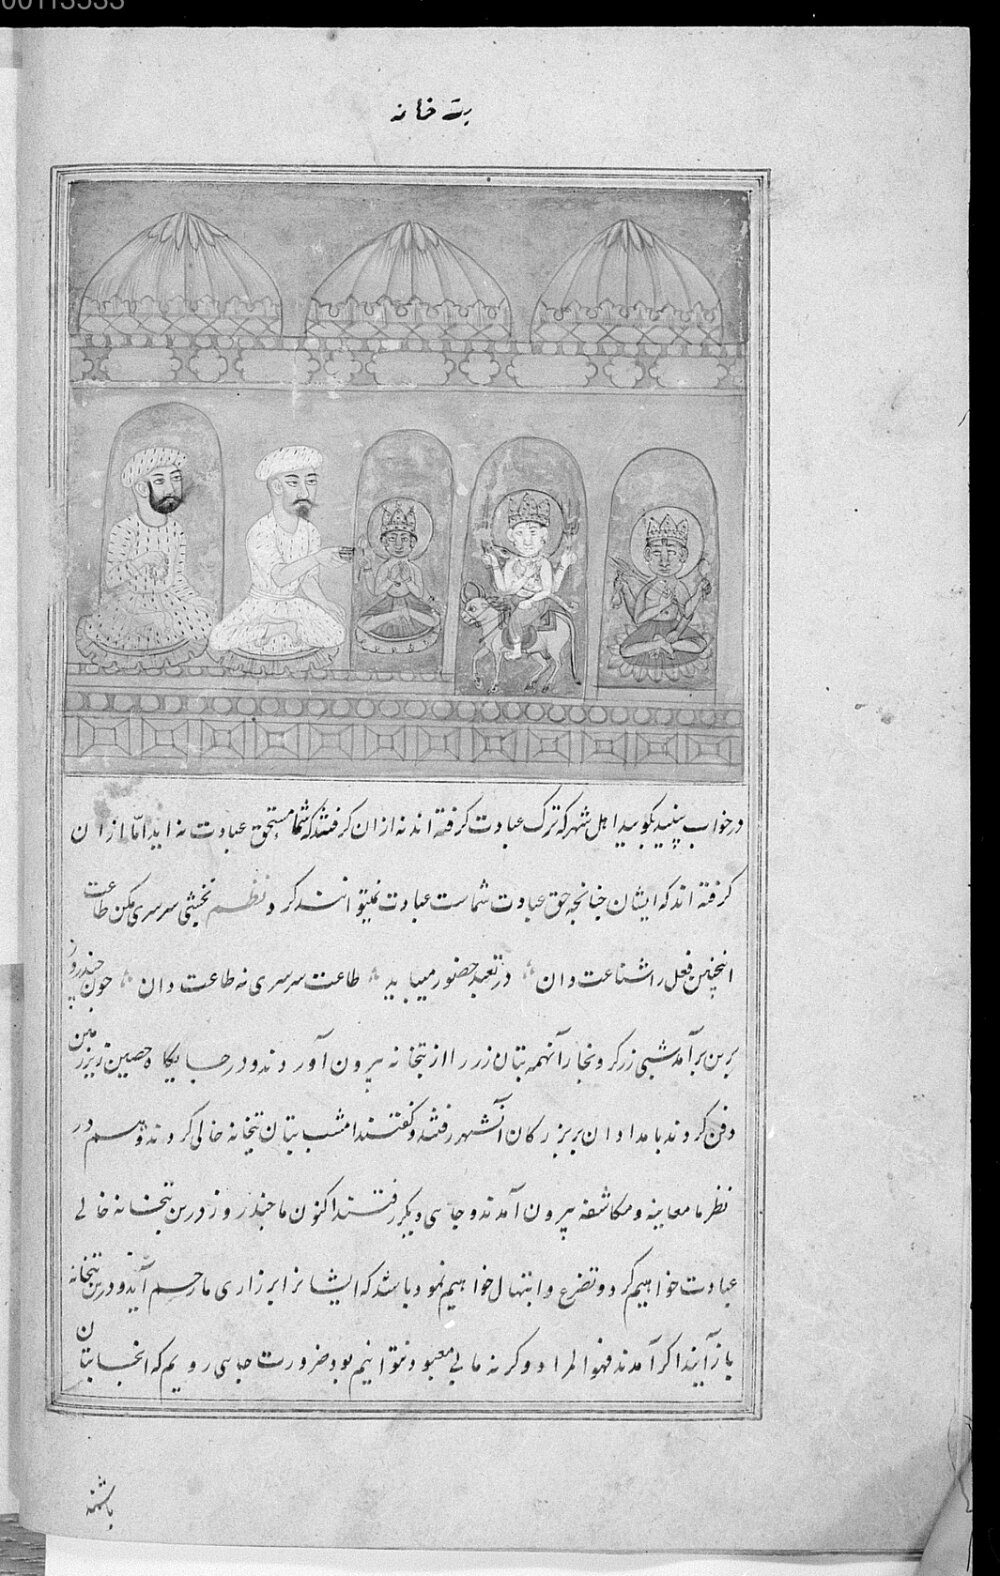 00113533
بت خانه
در خواب بینید بگویید اهل شهر که ترک عبادت گرفته اند نه ازان گرفتند که شما مستحق عبادت نه اید اما ازان
گرفته اند که ایشان چنانچه حق عبادت شماست عبادت نمیتوانند کرد نظم نخشبی سرسری مکن طاعت
اینچنین فعل را شناعت دان در تعبد حضور میباید طاعت سرسری نه طاعت دان چون چند روز
برین برآمد شبی زرگر و نجار آنهمه بتان زر را از بتخانه بیرون آوردند و در جایگاه حصین زیر زمین
دفن کردند بامدادان بر بزرگان آنشهر رفتند و گفتند امشب بتان بتخانه خالی کردند و هم در
نظر ما معاینه و مکاشفه بیرون آمدند و جای دیگر رفتند اکنون ما چند روز درین بتخانه خالی
عبادت خواهیم کرد و تضرع و ابتهال خواهیم نمود باشد که ایشانرا بر زاری ما رحم آید و درین بتخانه
باز آیند اگر آمدند فهو المراد و گرنه ما بی معبود نتوانیم بود ضرورت جای رویم که آنجا بتان
باشند